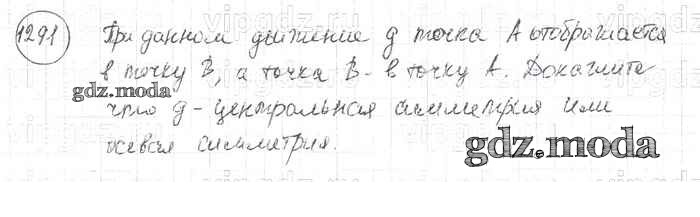 1291 При данном движение g точка А отображается
в точку В, а точка В - в точку А. Докажите
gdz.moda
что g - центральная симметрия или
осевая симметрия.
gdz.moda